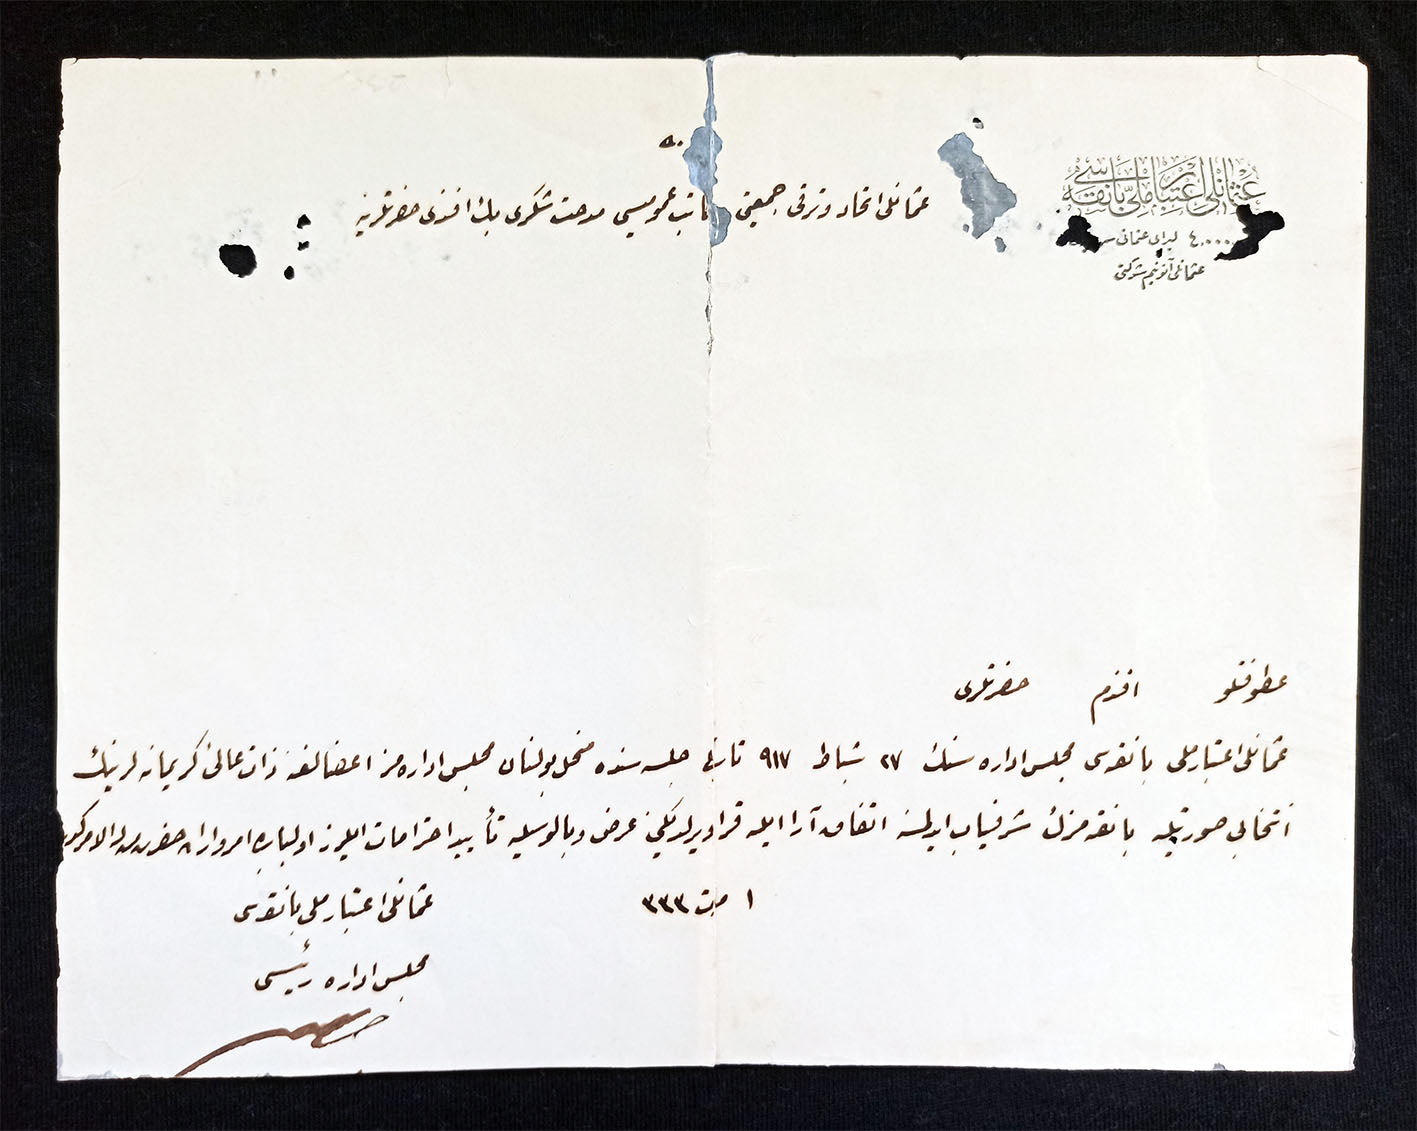 عثمانلی اعتبار ملی بانقه سی
عثمانلی آنونیم شرکتی
۵۰
عثمانلی اتحاد و ترقی جمعیتی كاتب عمومیسی مدحت شكری بك افندی حضرتلرینه
عطوفتلو افندم حضرتلری
عثمانلی اعتبار ملی بانقه‌سی مجلس اداره سنك ۲۷ شباط ۹۱۷ تاریخلی جلسه سنده منحل بولنان مجلس اداره مز اعضالغنه ذات عالی كریمانه لرینك
انتخابی صورتیله بانقه مزك شرفیاب ایدلمسنه اتفاق آرا ایله قرار ویرلدیكنی عرض و بالوسیله تأیید احترامات ایلرز اولبابده امر و اراده حضرت من له الامركدر
۱ مارت ۳۳۳
عثمانلی اعتبار ملی بانقه‌سی
مجلس اداره رئیسی